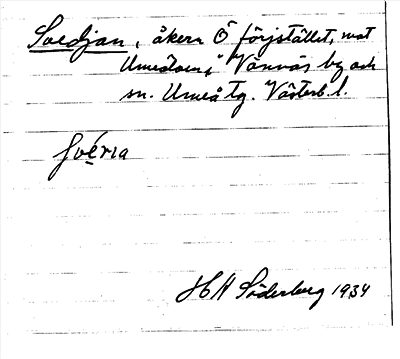 Svedjan, åkern Ö färjstället, mot
Umeälven, i Vännäs by och
sn. Umeå tg. Västerb. l.
svérıa
H H Söderberg 1934